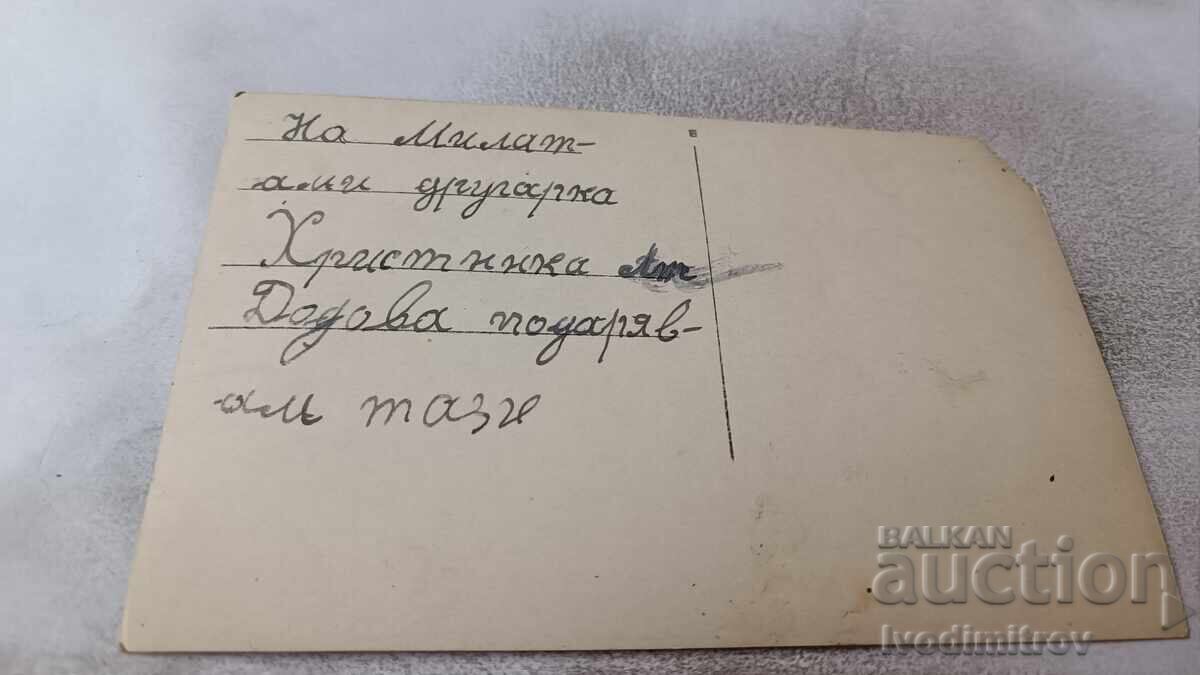 На Милат-
ами другарка
Христинка
Додова подаряв-
ам тази
BALKAN
auction
Ivodimitrov